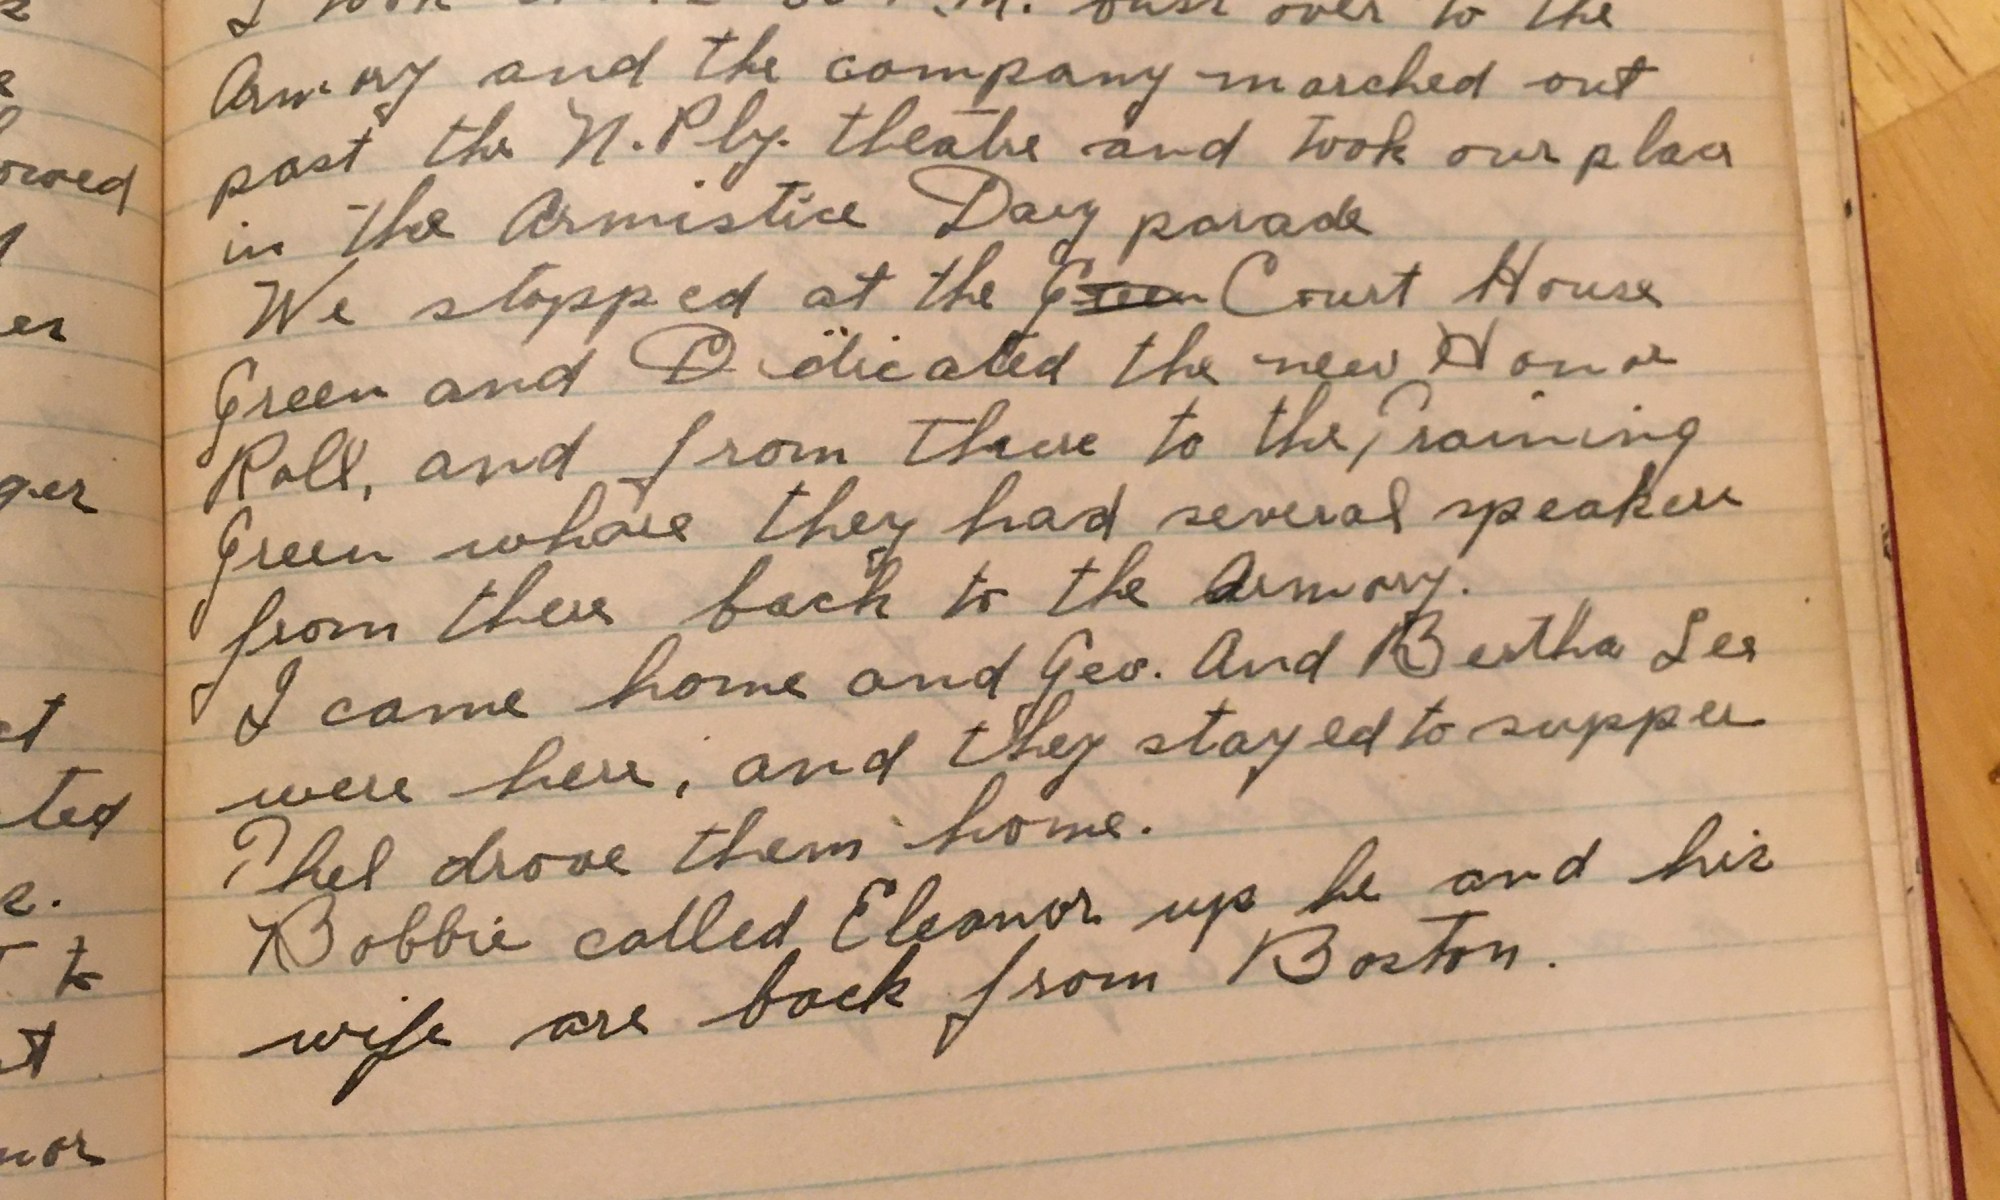 I took at 12 30 P.M. bus over to the
Armory and the company marched out
past the N. Ply. theatre and took our place
in the Armistice Day parade
We stopped at the Green Court House
Green and Didicated the new Honor
Roll, and from there to the Training
Green where they had several speakers
from there back to the Armory.
I came home and Geo. And Bertha Lee
were here, and they stayed to supper
Phel drove them home.
Bobbie called Eleanor up he and his
wife are back from Boston.
owed
er
ger
ted
to
nor